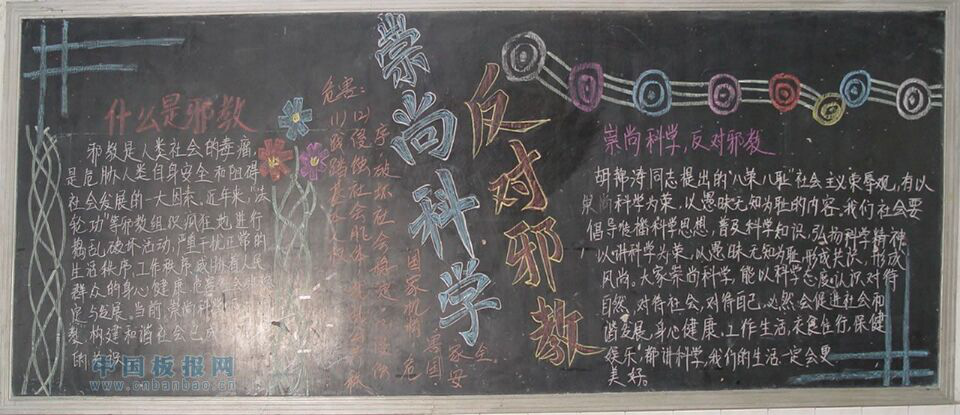 什么是邪教
邪教是人类社会的毒瘤,
是危胁人类自身安全和阻碍
社会发展的一大因素,近年来,"法
轮功"等邪教组织疯狂地进行
捣乱,破坏活动,严重干扰正常的
生活秩序,工作秩序,威胁着人民
群众的身心健康,危害社会
定与发展,当前,崇尚科学
教,构建和谐社会已成
的
危害:
(1)践踏基本人权
(2)侵蚀社会肌体
序,破坏社会稳定
国家机构
危害国家安全
崇尚科学
反对邪教
崇尚科学,反对邪教
胡锦涛同志提出的"八荣八耻"社会主义荣辱观,有以
崇尚科学为荣,以愚昧无知为耻的内容,我们社会要
倡导传播科学思想,普及科学知识,弘扬科学精神
以讲科学为荣,以愚昧无知为耻,形成共识,形成
风尚。大家崇尚科学,能以科学态度认识对待
自然,对待社会,对待自己,必然会促进社会和
谐发展,身心健康,工作生活,衣食住行,保健
娱乐,都讲科学,我们的生活一定会更
美好。
中国板报网
www.cnbanbao.cn